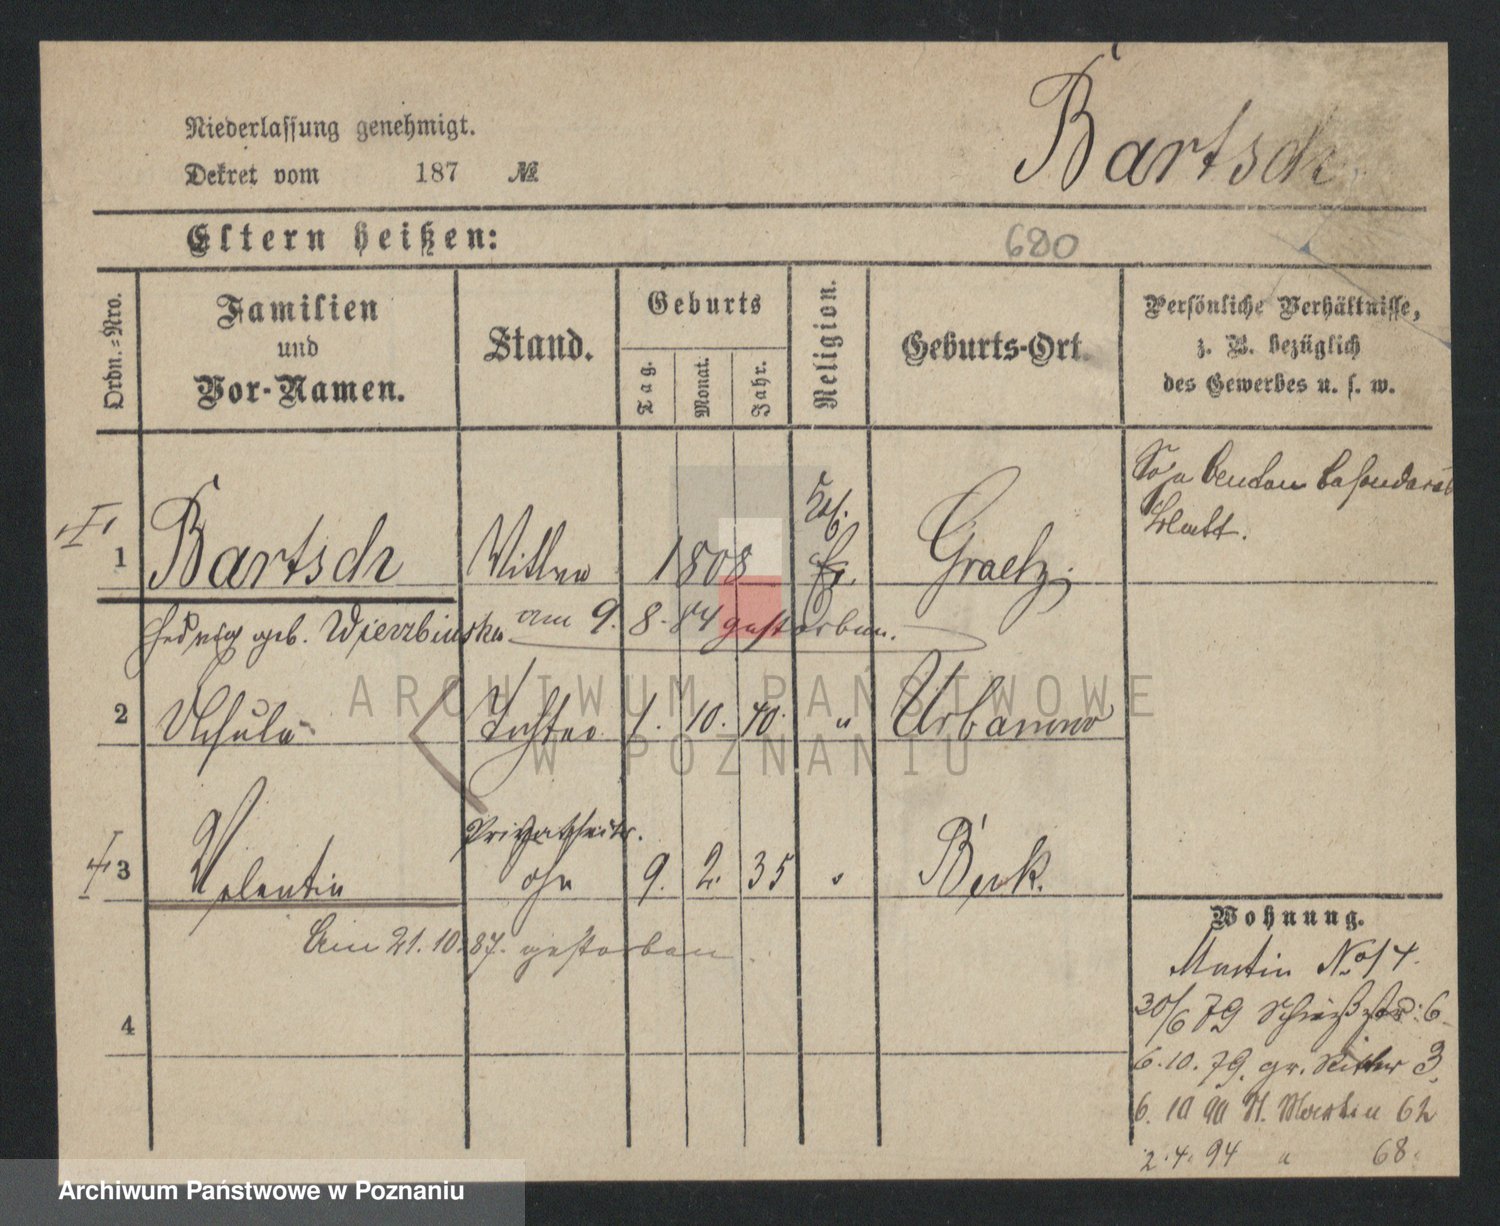 Bartsch
Niederlassung genehmigt.
Dekret vom 187 №
Eltern heißen:
680
Ordn.-Nro.
Familien
und
Vor-Namen.
Stand.
Geburts
Tag.
Monat.
Jahr.
Religion.
Geburts-Ort.
Persönliche Verhältnisse,
z. B. bezüglich
des Gewerbes u. s. w.
besonderes
Blatt.
1 Bartsch Wittwe 1808 Graetz.
Hedwig geb. Wierzbinska am 9. 8. 84 gestorben.
ARCHIWUM PAŃSTWOWE
W POZNANIU
2 Tochter 1. 10. 40. " Urbanowo
3 Valentin ohn 9. 2. 35 " Buk.
Am 21. 10. 87. gestorben
4
Wohnung.
Martin No 14.
30/6 79 Schießstr: 6
6. 10. 79. gr. Ritter 3.
6. 10 90 St. Martin 62
2. 4. 94 " 68.
Archiwum Państwowe w Poznaniu